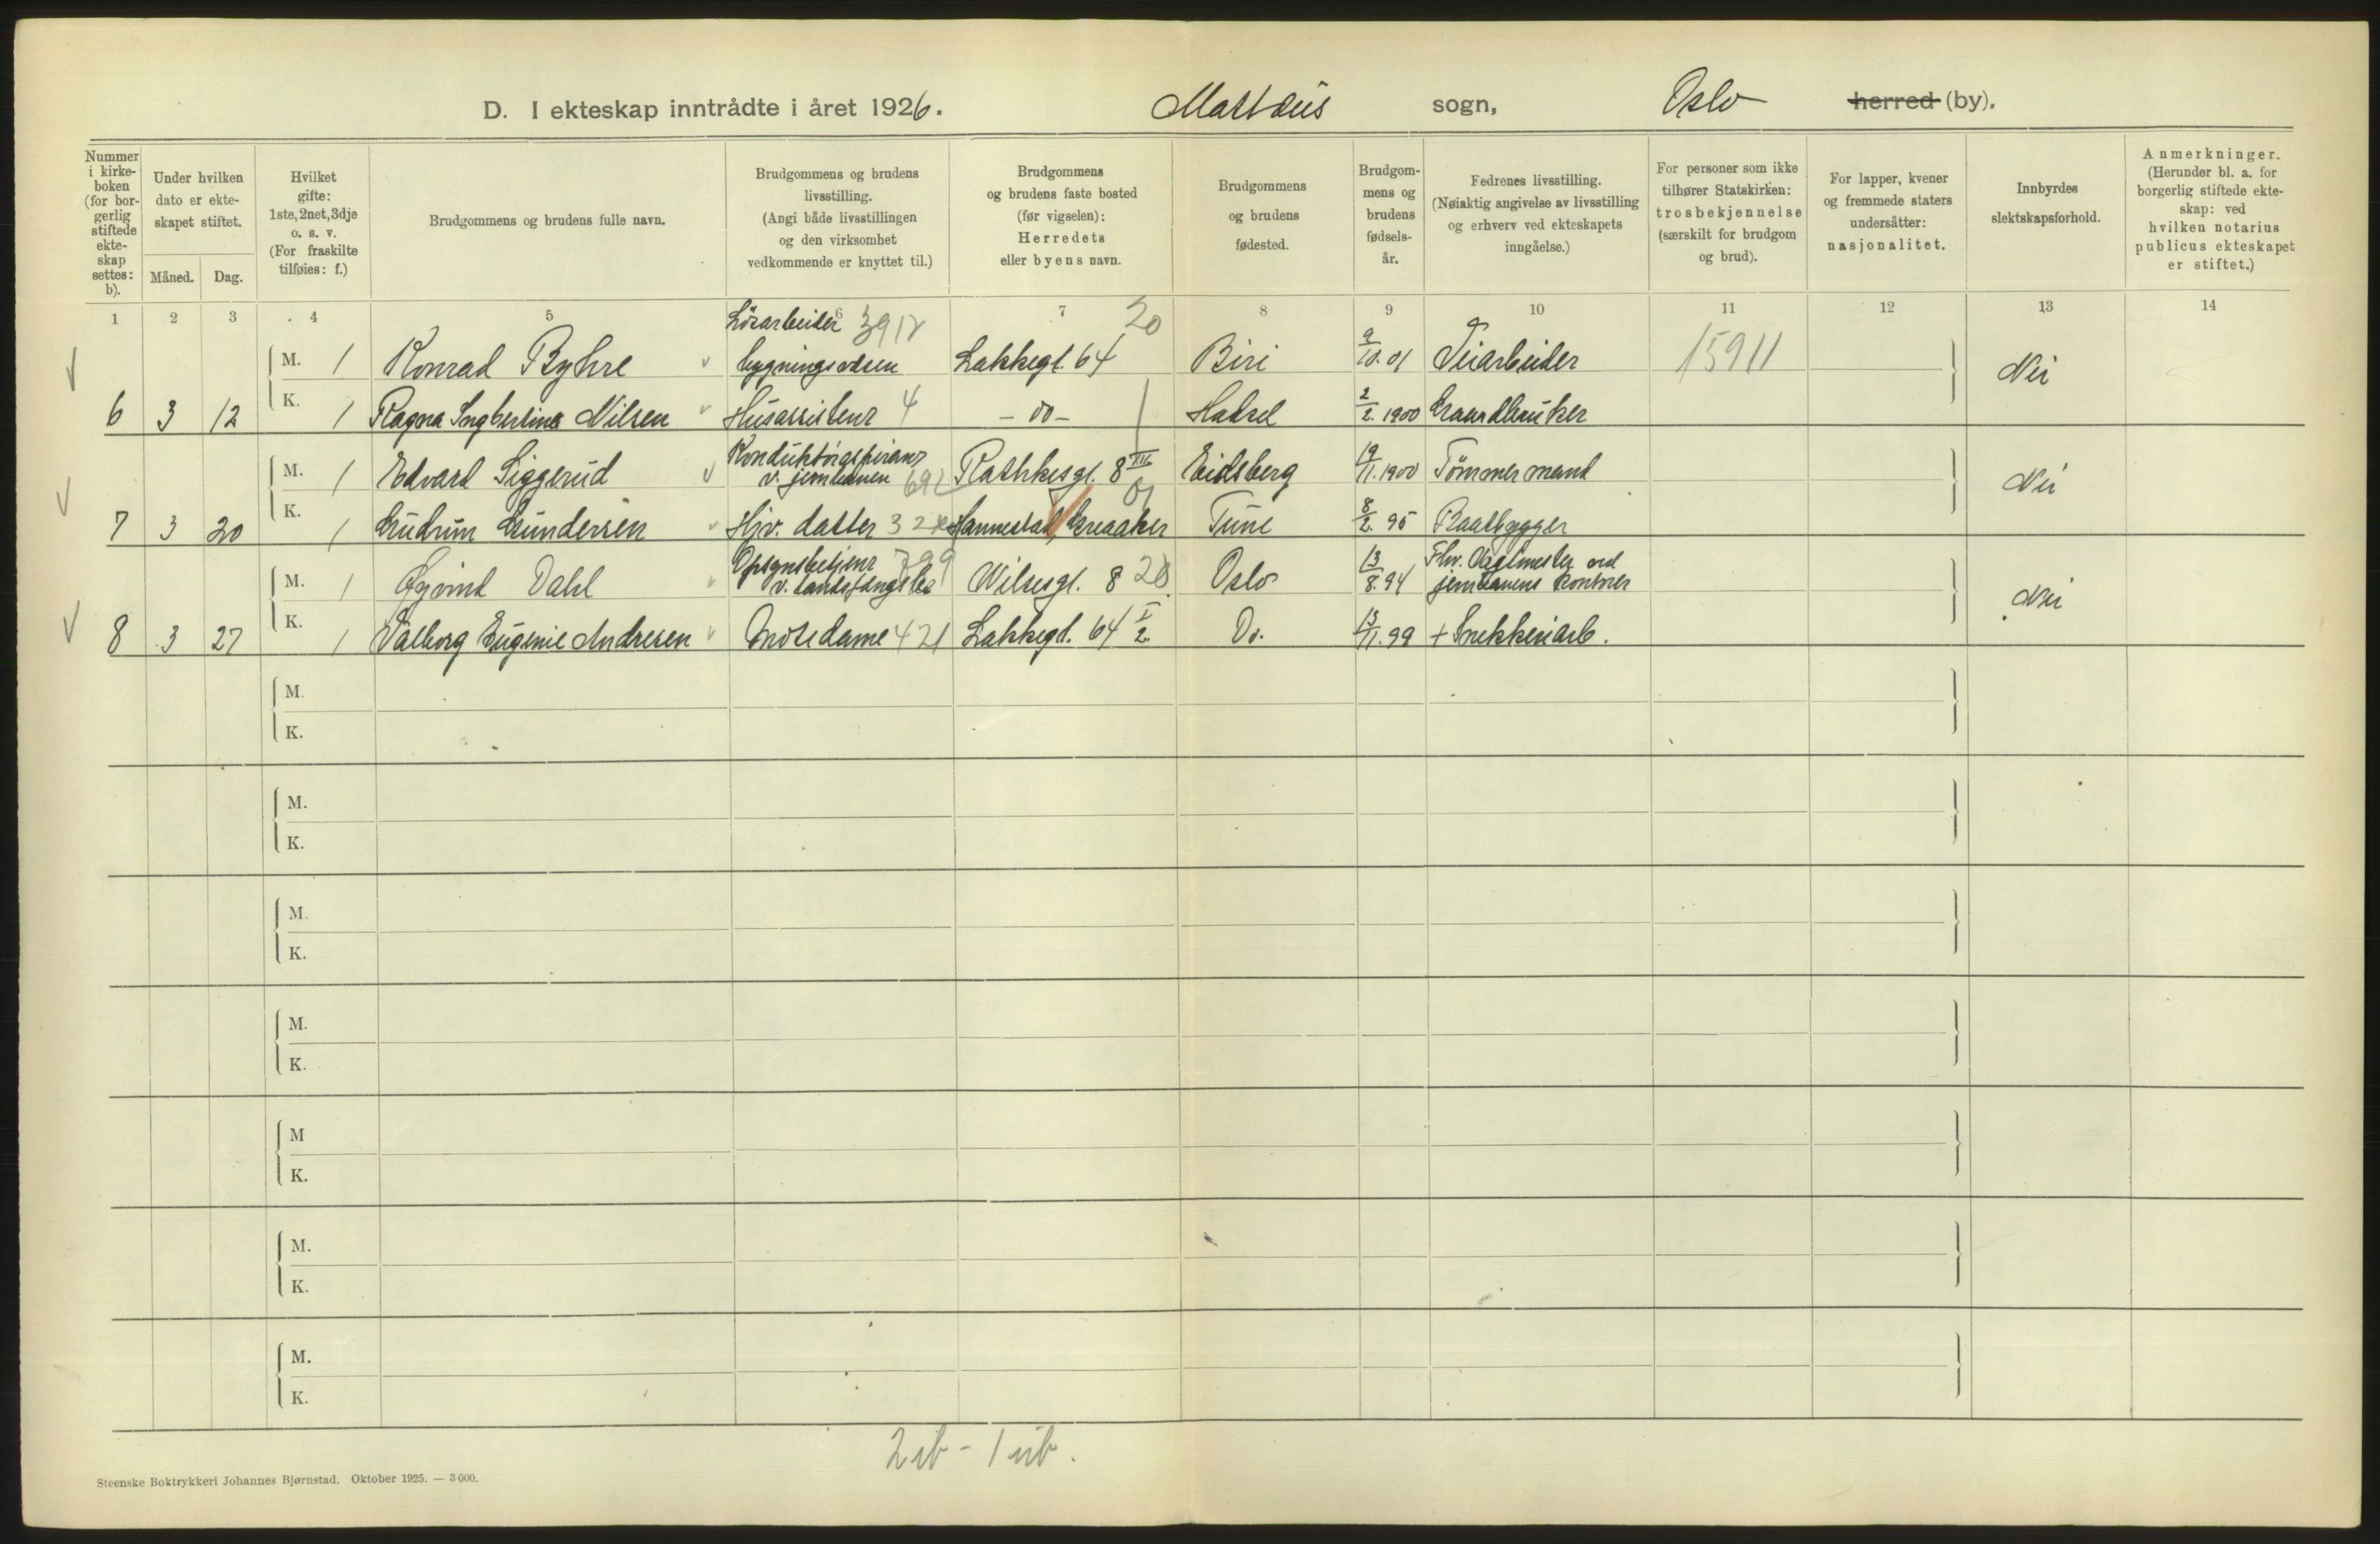 D. I ekteskap inntrådte i året 1926. Mattæus sogn, Oslo herred (by).
Nummer i kirkeboken (for borgerlig stiftede ekteskap settes: b).
Under hvilken dato er ekteskapet stiftet.
Måned. Dag.
Hvilket gifte: 1ste, 2net, 3dje o. s. v. (For fraskilte tilføies: f.)
Brudgommens og brudens fulle navn.
Brudgommens og brudens livsstilling. (Angi både livsstillingen og den virksomhet vedkommende er knyttet til.)
Brudgommens og brudens faste bosted (før vigselen): Herredets eller byens navn.
Brudgommens og brudens fødested.
Brudgommens og brudens fødselsår.
Fedrenes livsstilling. (Nøiaktig angivelse av livsstilling og erhverv ved ekteskapets inngåelse.)
For personer som ikke tilhører Statskirken: trosbekjennelse (særskilt for brudgom og brud).
For lapper, kvener og fremmede staters undersåtter: nasjonalitet.
Innbyrdes slektskapsforhold.
Anmerkninger. (Herunder bl. a. for borgerlig stiftede ekteskap: ved hvilken notarius publicus ekteskapet er stiftet.)
1 2 3 4 5 6 7 8 9 10 11 12 13 14
Løsarbeider 3912 20
M. 1 Konrad Byhre bygningsvæsen Lakkegt. 64 Biri 9/10.01 Veiarbeider 15911 Nei
6 3 12 K. 1 Ragna Ingberline Nilsen Husassistent 4 - do - Hadsel 2/2.1900 Gaardbruker
Konduktøraspirant
M. 1 Edvard Siggerud v. jernbanen 692 Rathkesgt. 8 III Eidsberg 19/11.1900 Tømmermand Nei
7 3 20 K. 1 Gudrun Gundersen Hjv. datter 32 Hannestad, Greaaker Tune 8/2.95 Baatbygger
Opsynsbetjent 799 Fhv. Vægtmester ved
M. 1 Øyvind Dahl v. landsfængslet Wilsesgt. 8 20 Oslo 13/8.94 jernbanens kontorer Nei
8 3 27 K. 1 Valborg Eugenie Andresen Motedame 421 Lakkegt. 64 I/2 Do. 13/11.99 + Snekkeriarb.
M.
K.
M.
K.
M.
K.
M.
K.
M
K.
M.
K.
M.
K.
2 ib - 1 ub.
Steenske Boktrykkeri Johannes Bjørnstad. Oktober 1925. — 3000.